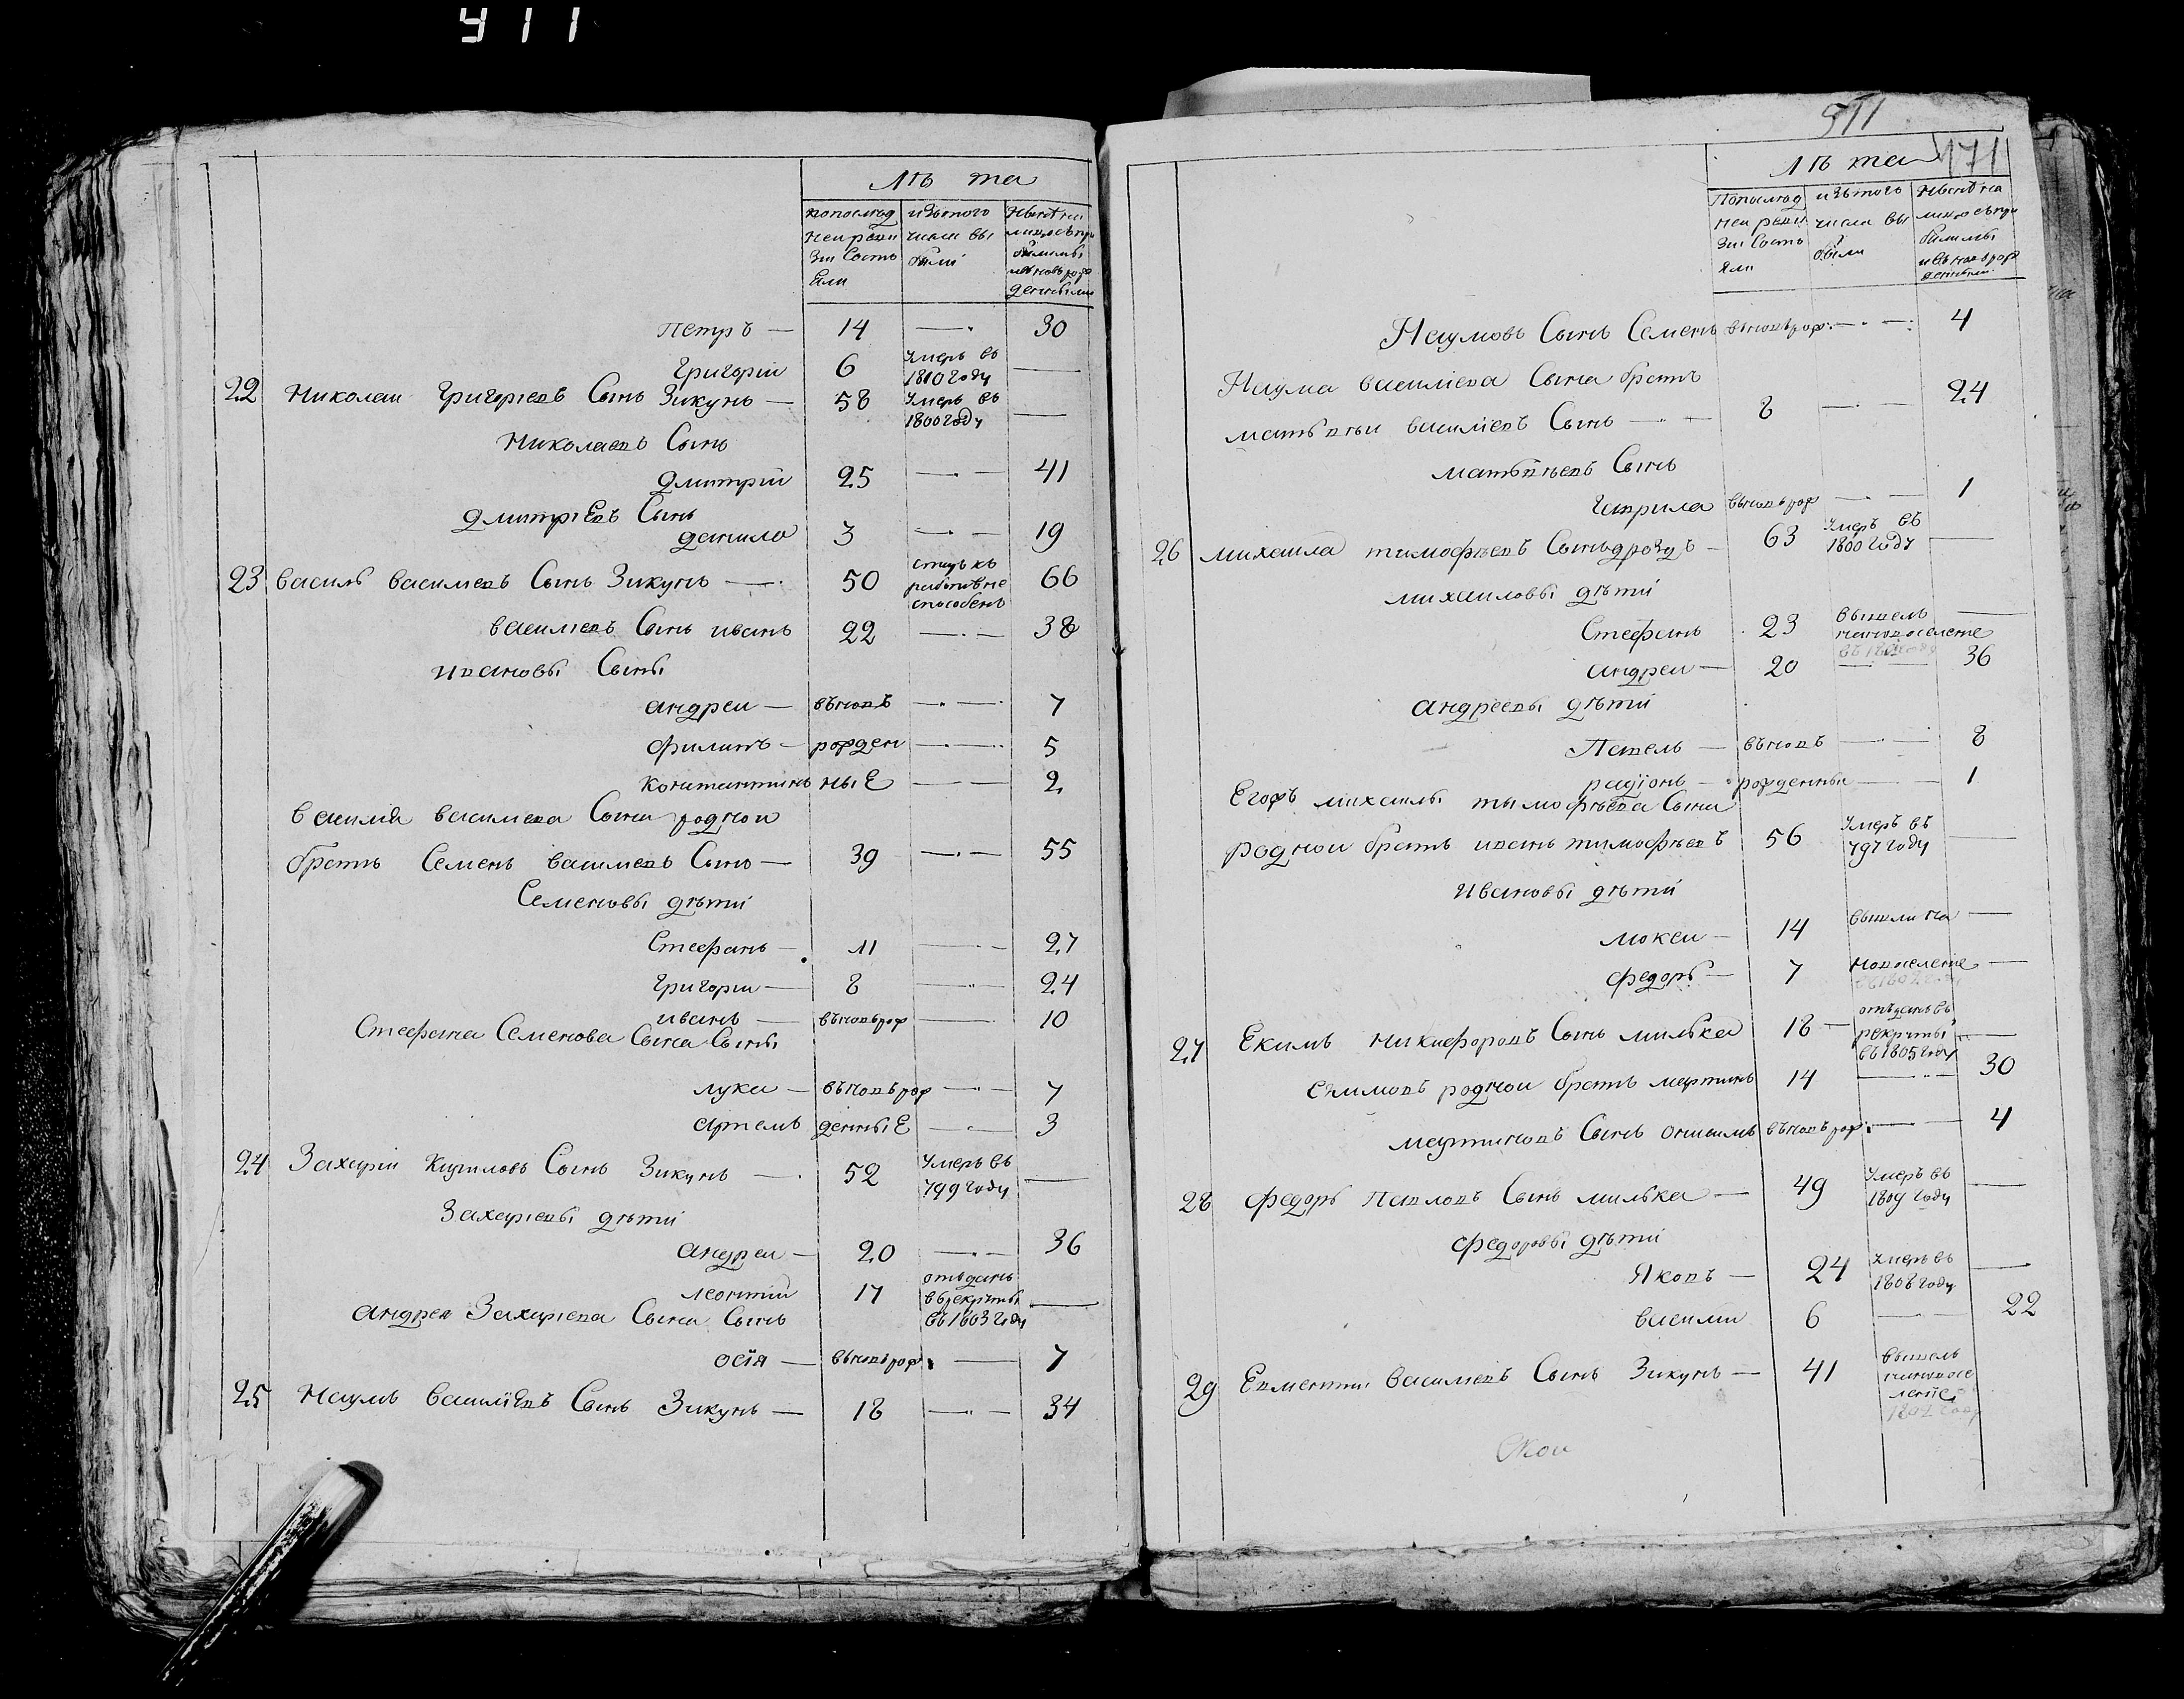 911
лѣ та
попослѣд
ней реви
зiи Состо
Яли
изътого
числа вы
были
Нынѣ на
лицо съпри
былыми
ивъновь рож
денными
Петръ — 14 —. 30
Григорiй 6 Умеръ въ
1810 году —
22 Николаи Григорiевъ Сынъ Зикунъ — 58 Умеръ въ
1800 году —
Николаевъ Сынъ
Дмитрiй 25 —. — 41
ДмитрiЕвъ Сынъ
данило 3 —. — 19
23 василь васильевъ Сынъ Зикунъ —. 50 66
способенъ
васильевъ Сынъ иванъ 22 —. — 38
ивановы Сыны
андреи — въновь —. — 7
филипъ — рожден —. — 5
Константинъ ныЕ —. — 2
василiя васильева Сына роднои
братъ Семенъ васильевъ Сынъ — 39 —. — 55
Семеновы дѣти
Стефанъ — 11 —. — 27
Григорiи — 8 —. — 24
иванъ — въновърож — 10
Стефана Семенова Сына Сыны
лука — въновърож —. — 7
артемъ денныЕ —. — 3
24 Захарiи Кириловъ Сынъ Зикунъ —. 52 Умеръ въ
799 году —
Захарiевы дѣти
андреи — 20 —. — 36
леонтiи 17 отъданъ
въ рекруты
въ 1803 году —
андрея Захарiева Сына Сынъ
осiя — въновърож. — 7
25 Наумъ василiЕвъ Сынъ Зикунъ — 18 —. — 34
511
171
лѣ та
Попослѣд
неи реви
зiи Состо
яли
изътого
числа вы
были
Нынѣ на
лицо съпри
былымы
ивъновърож
денными
Наумовъ Сынъ Семенъ въновърож. —. —. 4
Наума васильева Сына братъ
матьвѣи васильевъ Сынъ —. — 8 —. — 24
матьвѣевъ Сынъ
Гаврила въновърож —. — 1
26 михаила тимофѣевъ Сынъ дроздъ — 63 Умеръ въ
1800 году —
михаиловы дѣти
Стефанъ 23 вышелъ —
нановоселенiе
андреи — 20 — 36
андреевы дѣти
Павелъ — въновъ —. — 8
радiонъ — рожденны —. — 1
Егожъ михаилы тымофѣева Сына
роднои братъ иванъ тимофѣевъ 56 Умеръ въ
797 году —
Ивановы дѣти
мокеи — 14 вышли на —
федоръ — 7 новоселенiе —
27 Екимъ никифоровъ Сынъ милька 18 — отъданъ въ
рекруты
въ 1805 году —
Екимовъ роднои братъ мартинъ 14 —. — 30
мартиновъ Сынъ въновърож. — 4
28 федоръ Павловъ Сынъ милька — 49 Умеръ въ
1809 году —
федоровы дѣти
Яковъ — 24 Умеръ въ
1808 году —
василiи 6 — 22
29 Евментiи васильевъ Сынъ Зикунъ — 41 вышелъ
нановосе
ленiе